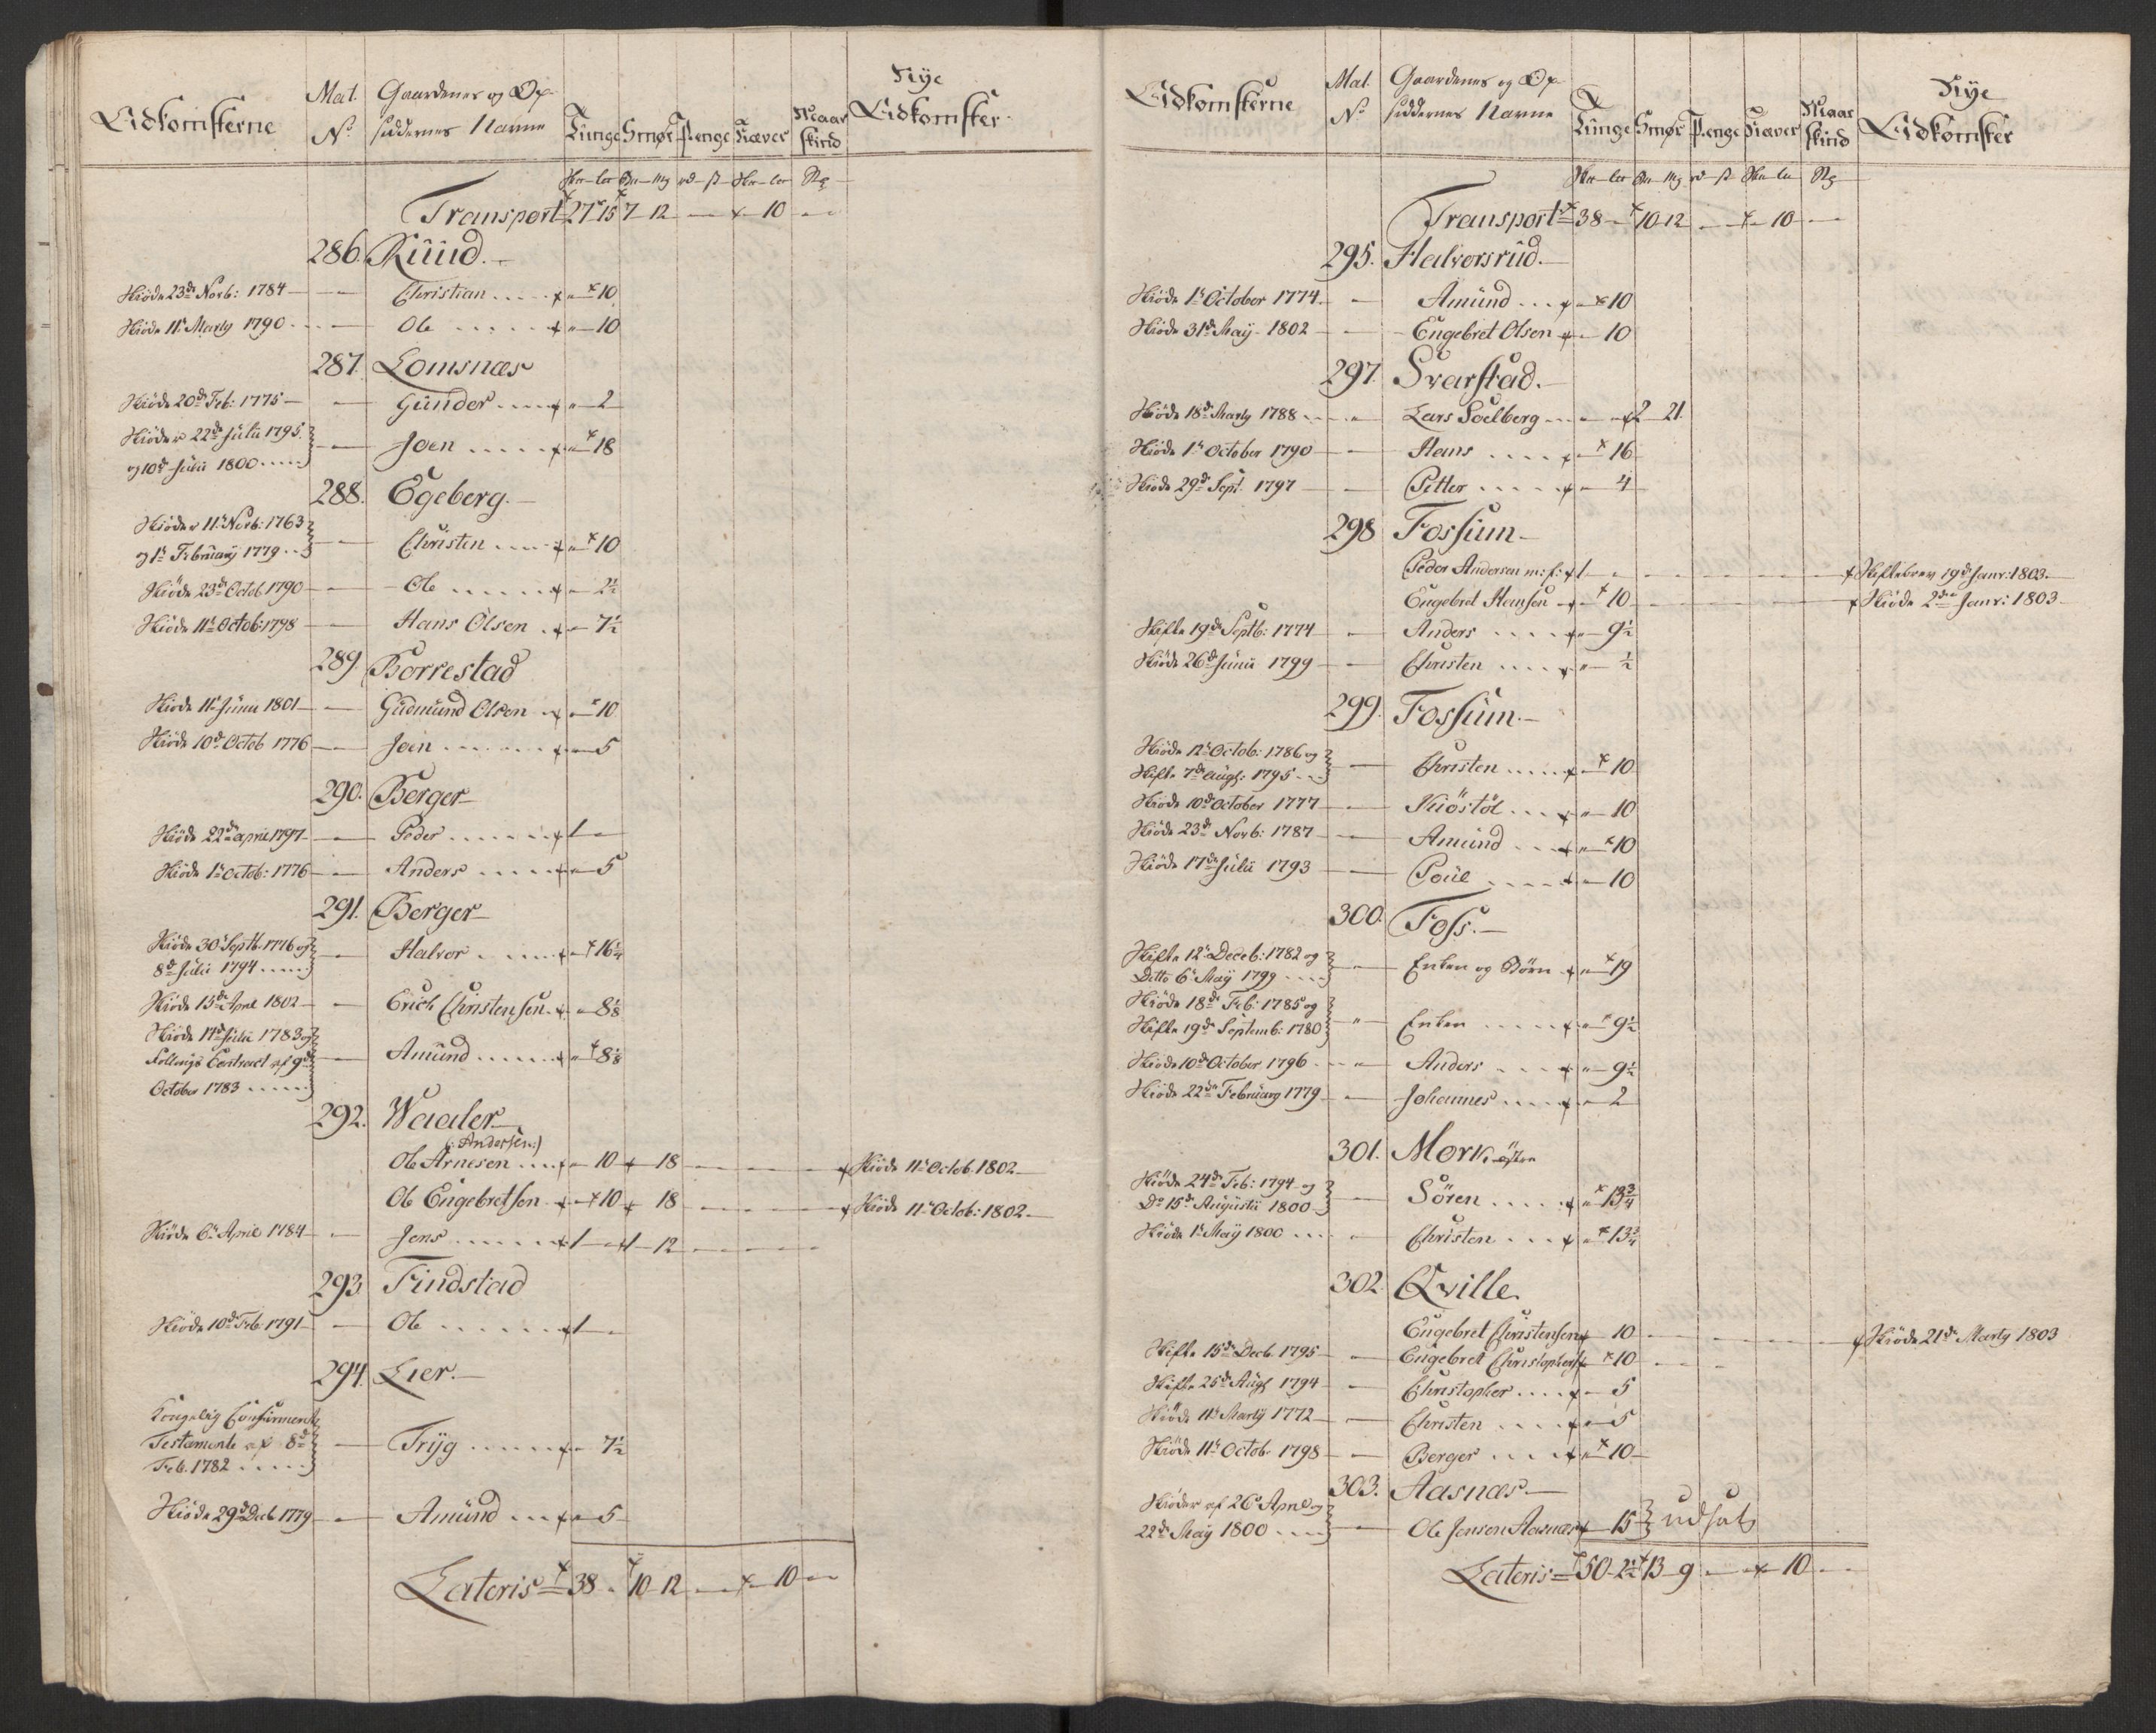 Adkomsterne Mat. No. Gaardenes og Op-siddernes Navne Tunge Smør Penge Kæver Maar skind Nye Adkomster
Transport 27 15 7 - 12 - 10
286. Ruud.
Skiøde 23de Novb: 1784 Christian 10
Skiøde 11te Marty 1790 Ole 10
287. Lomsnæs
Skiøde 20de Feb: 1775 Gunder 2
Skiøder 22de Julii 1795.
og 10de Julii 1800 Joen 18
288. Egeberg.
Skiøder 11te Novb: 1763
og 1te February 1779 Christen 10
Skiøde 23de Octob 1790 Ole 2½
Skiøde 11te Octob: 1798 Hans Olsen 7½
289. Borrestad
Skiøde 11te Junii 1801 Gudmund Olsen 10
Skiøde 10de Octob 1776 Joen 5
290. Berger
Skiøde 22de april 1797 Peder 1
Skiøde 1te Octob: 1776 Anders 5
291. Berger
Skiøde 30te Septb. 1776 og
8de Julii 1794 Halvor 16¼
Skiøde 13de April 1802 Erich Christensen 8⅛
Skiøde 17de Julii 1783 og
Contract af 9de
October 1783 Amund 8⅛
292. Waaler
(: Andersen :)
Ole Arnesen 10 18 Skiøde 11te Octob. 1802
Ole Engebretsen 10 18 Skiøde 11te Octob: 1802
Skiøde 6te April 1784 Jens 1 - 1 - 12
293. Findstad
Skiøde 10de Feb. 1791 Ole 1
294. Lier.
Kongelig Confirmeret
Testamente af 8de
Feb. 1782 Tryg 7½
Skiøde 29de Decb 1779 Amund 5
Lateris 38 10 - 12 10
Adkomsterne Mat. No. Gaardenes og Op-siddernes Navne Tunge Smør Penge Kæver Maar skind Nye Adkomster
Transport 38 10 - 12 10
295. Halvorsrud.
Skiøde 1te October 1774 Amund 10
Skiøde 31te May 1802 Engebret Olsen 10
297. Svarstad.
Skiøde 18de Marty 1788 Lars Soelberg 2 21.
Skiøde 1te October 1790 Hans 16
Skiøde 29de Sept. 1797 Petter 4
298 Fossum
Peder Andersen m: f: 1 Skiftebrev 19de Janr: 1803.
Engebret Hansen 10 Skiøde 2den Janr: 1803
Skifte 19de Septb: 1774 Anders 9½
Skiøde 26de Junii 1799 Christen ½
299. Fossum
Skiøde 12te Octob: 1786 og
Skifte 7de Augs: 1795 Christen 10
Skiøde 10de October 1777 Kiøstøl 10
Skiøde 23de Novb: 1787 Amund 10
Skiøde 17de Julii 1793 Poul 10
300. Foss.
Skifte 12te Deceb: 1782 og
Ditto 6te May 1799 Enken og Børn 19
Skiøde 18de Feb: 1785 og
Skifte 19de Septemb: 1780 Enken 9½
Skiøde 10de October 1796 Anders 9½
Skiøde 22de February 1779 Johannes 2
301. Mork østre
Skiøde 24de Feb: 1794 og
Do 15de Augustii 1800 Søren 13¾
Skiøde 1te May 1800 Christen 13¾
302. Qville
Engebret Christensen 10 Skiøde 21de Marty 1803
Skifte 15de Decb. 1795 Engebret Christophers 10
Skifte 25de Augs 1794 Christopher 5
Skiøde 11te Marty 1772 Christen 5
Skiøde 11te Octob. 1798 Berger 10
303. Aasnæs
Skiøder af 26te April og
22de May 1800 Ole Jensen Aasnæs 15 udsat
Lateris 50 - 2½ 13 - 9 10